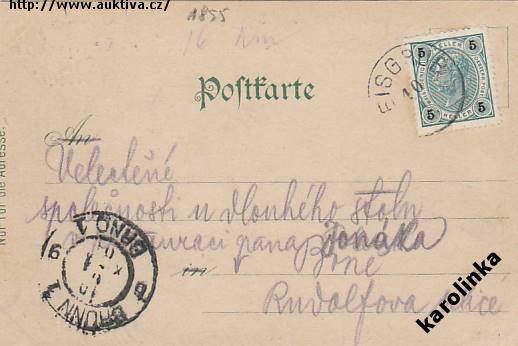 http://www.auktiva.cz/
1855
16 Km
Postkarte
5 HELLER 5
5 HELLER 5
EISG
10
An
Velectěné
společnosti u dlouhého stolu
v restauraci pana Jonáka
in Brně
Rudolfova ulice
BRNO 1
BRÜNN 1
9
Nur für die Adresse.
karolinka